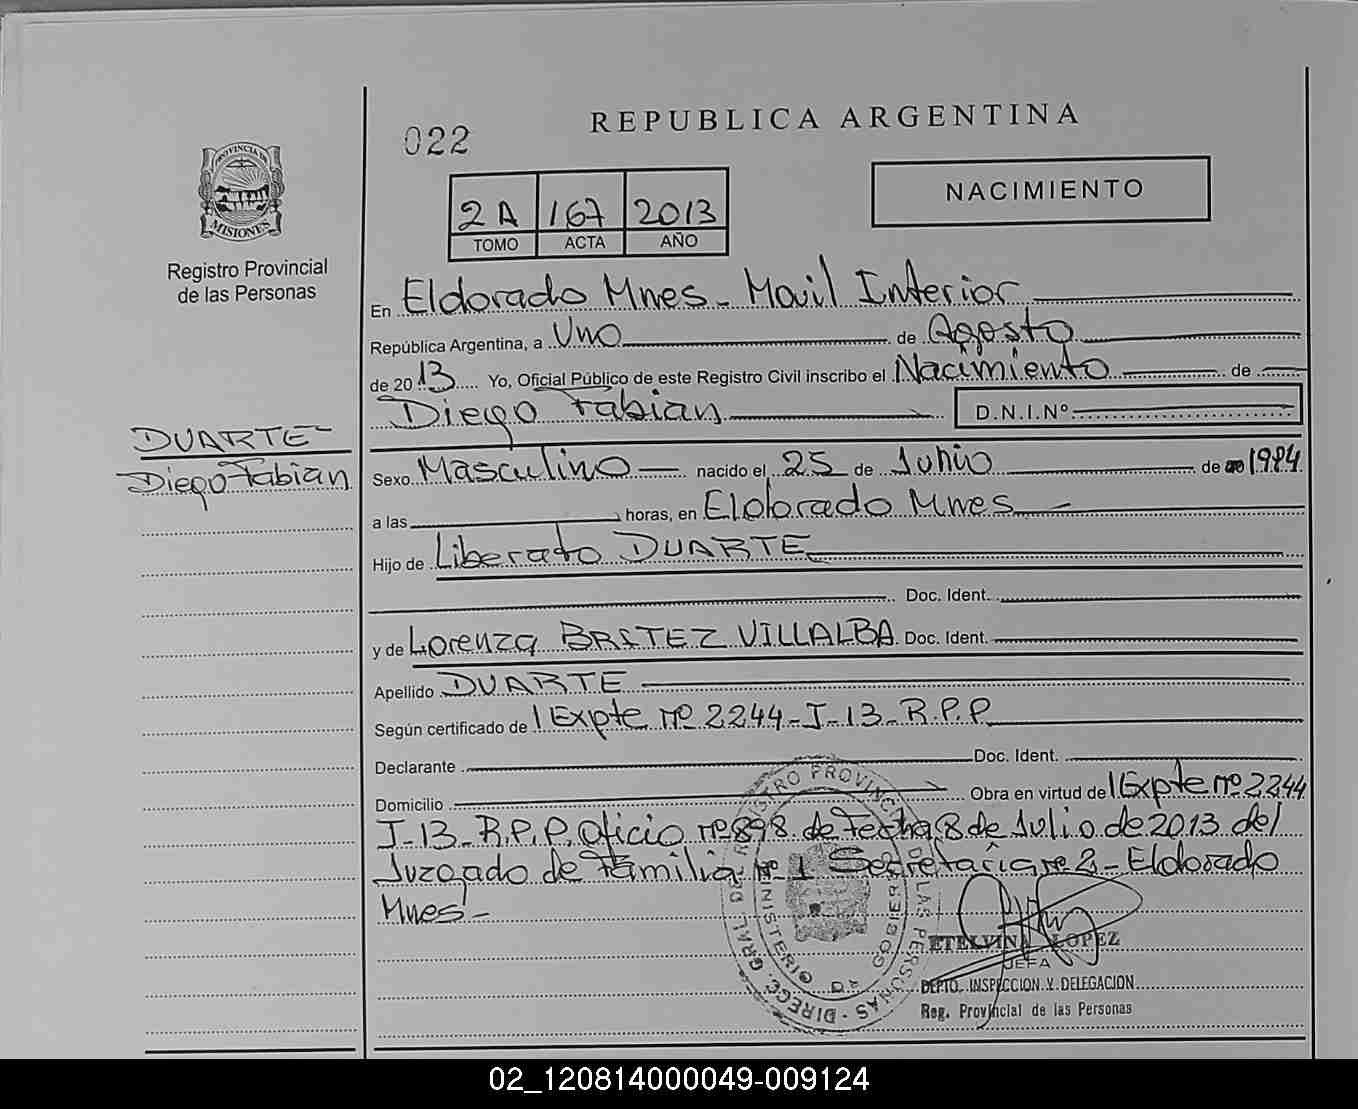 022
REPUBLICA ARGENTINA
NACIMIENTO
2A 167 2013
TOMO ACTA AÑO
PROVINCIA DE
MISIONES
Registro Provincial
de las Personas
En Eldorado Mnes - Movil Interior
República Argentina, a Uno de Agosto
de 2013 Yo, Oficial Público de este Registro Civil inscribo el Nacimiento de
Diego Fabian D.N.I.Nº
DUARTE
Diego Fabian
Sexo Masculino nacido el 25 de Junio de 1984
a las horas, en Eldorado Mnes
Hijo de Liberato DUARTE
Doc. Ident.
y de Lorenza BRITEZ VILLALBA Doc. Ident.
Apellido DUARTE
Según certificado de Expte nº 2244-J-13-R.P.P
Declarante Doc. Ident.
Domicilio Obra en virtud de Expte nº 2244
J-13-R.P.P. Oficio nº 898 de Fecha 8 de Julio de 2013 del
Juzgado de Familia nº 1 Secretaria nº 2 - Eldorado
Mnes -
DIRECC. GRAL DE REGISTRO PROVINCIAL DE LAS PERSONAS
MINISTERIO DE GOBIERNO
ETELVINA LOPEZ
JEFA
DEPTO. INSPECCION Y DELEGACION
Reg. Provincial de las Personas
02_120814000049-009124